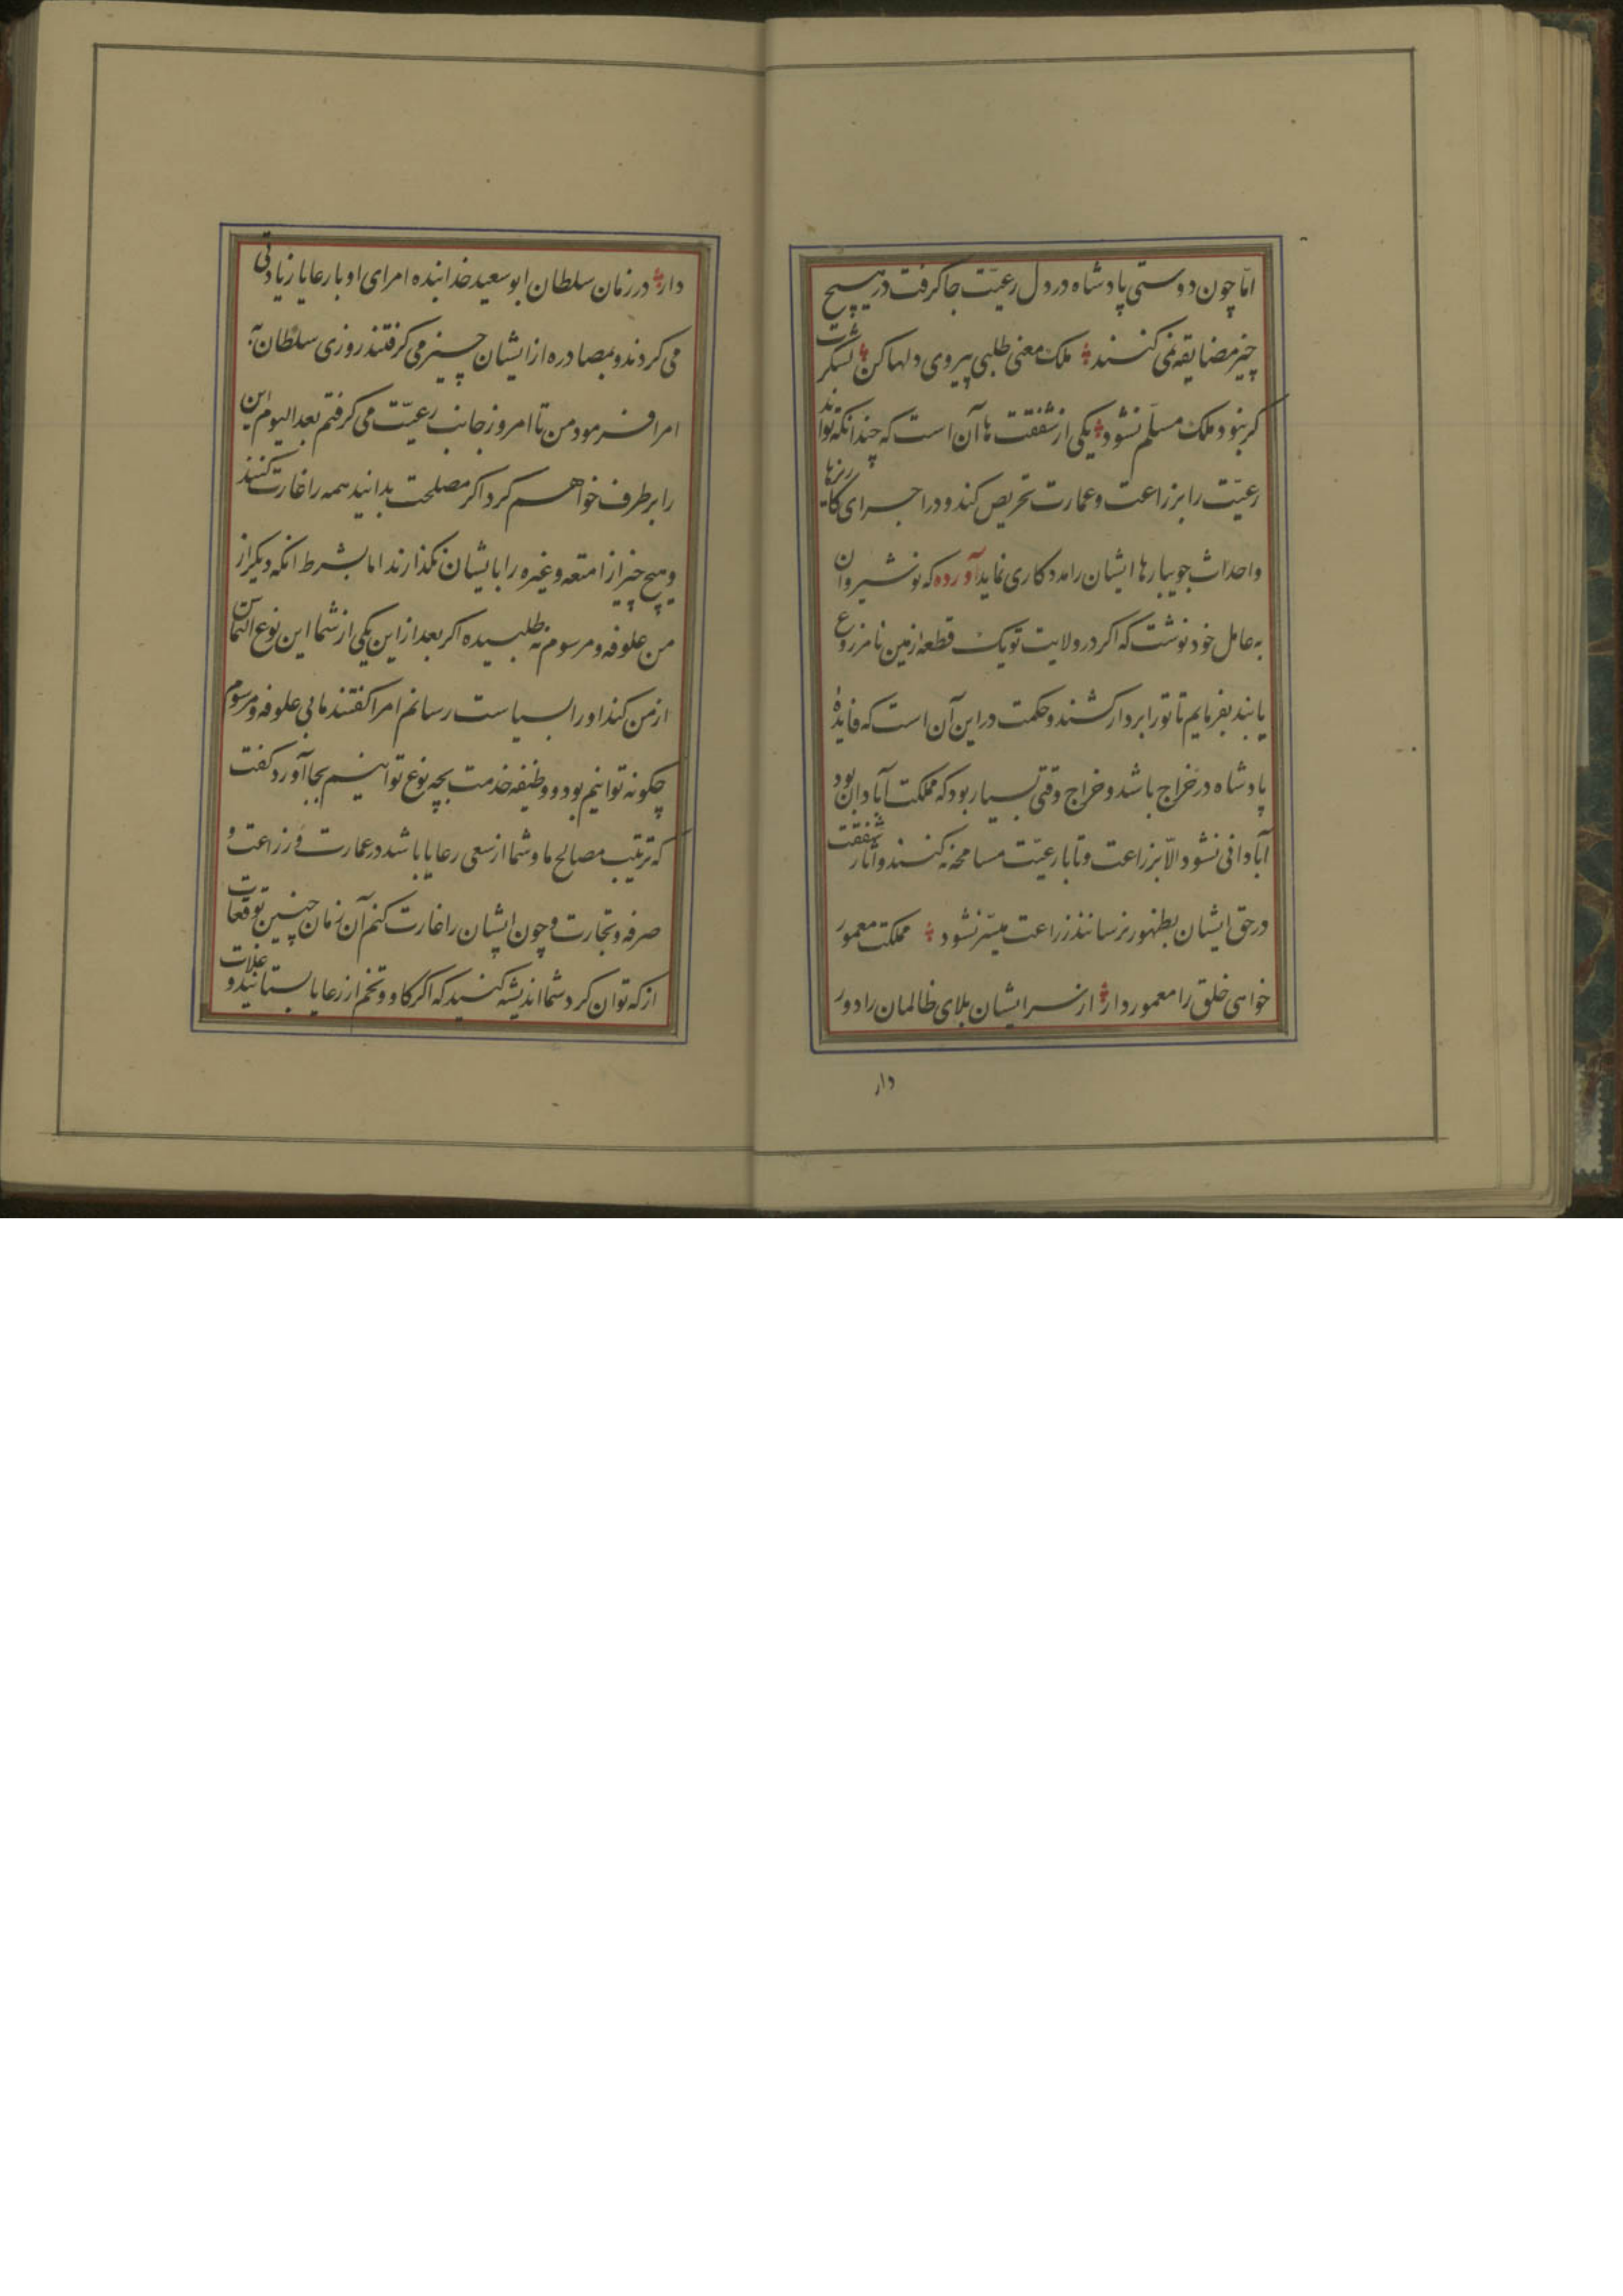 اما چون دوستی پادشاه در دل رعیّت جا گرفت در هیچ
چیز مضایقه نمی کنند ملک معنی طلبی پیروی دلها کن لشکرت
گر نبود ملک مسلّم نشود یکی از شفقت ها آن است که چندانکه تواند
رعیّت را بر زراعت و عمارت تحریص کند و در اجرای کاریزها
و احداث جویبارها ایشان را مدد کاری نماید آورده که نوشیروان
به عامل خود نوشت که اگر در ولایت تو یک قطعه زمین نامزروع
یابند بفرمایم تا تو را بردار کشند و حکمت در این آن است که فایدهٔ
پادشاه در خراج باشد و خراج وقتی بسیار بود که مملکت آبادان بود
آبادانی نشود الّا بزراعت و تا با رعیّت مسامحه نه کنند و آثار شفقت
در حق ایشان بظهور نرسانند زراعت میسّر نشود مملکت معمور
خواهی خلق را معمور دار از سر ایشان بلای ظالمان را دور
دار
دار در زمان سلطان ابو سعید خدابنده امرای او با رعایا زیادتی
می کردند و بمصادره از ایشان چیز می گرفتند روزی سلطان به
امرا فرمود من تا امروز جانب رعیّت می گرفتم بعد الیوم این
را بر طرف خواهم کرد اگر مصلحت بدانید همه را غارت کنند
و هیچ چیز از امتعه و غیره را بایشان نگذارند اما بشرط انکه دیگر از
من علوفه و مرسوم نه طلبیده اگر بعد از این یکی از شما این نوع التماس
از من کند او را بسیاست رسانم امرا گفتند ما بی علوفه و مرسوم
چگونه توانیم بود و وظیفه خدمت بچه نوع توانیم بجا آورد گفت
که ترتیب مصالح ما و شما از سعی رعایا باشد در عمارت و زراعت و
صرفه و تجارت و چون ایشان را غارت کنم آن زمان چنین توقعات
از که توان کرد شما اندیشه کنید که اگر گاو و تخم از رعایا بستانید و غلات